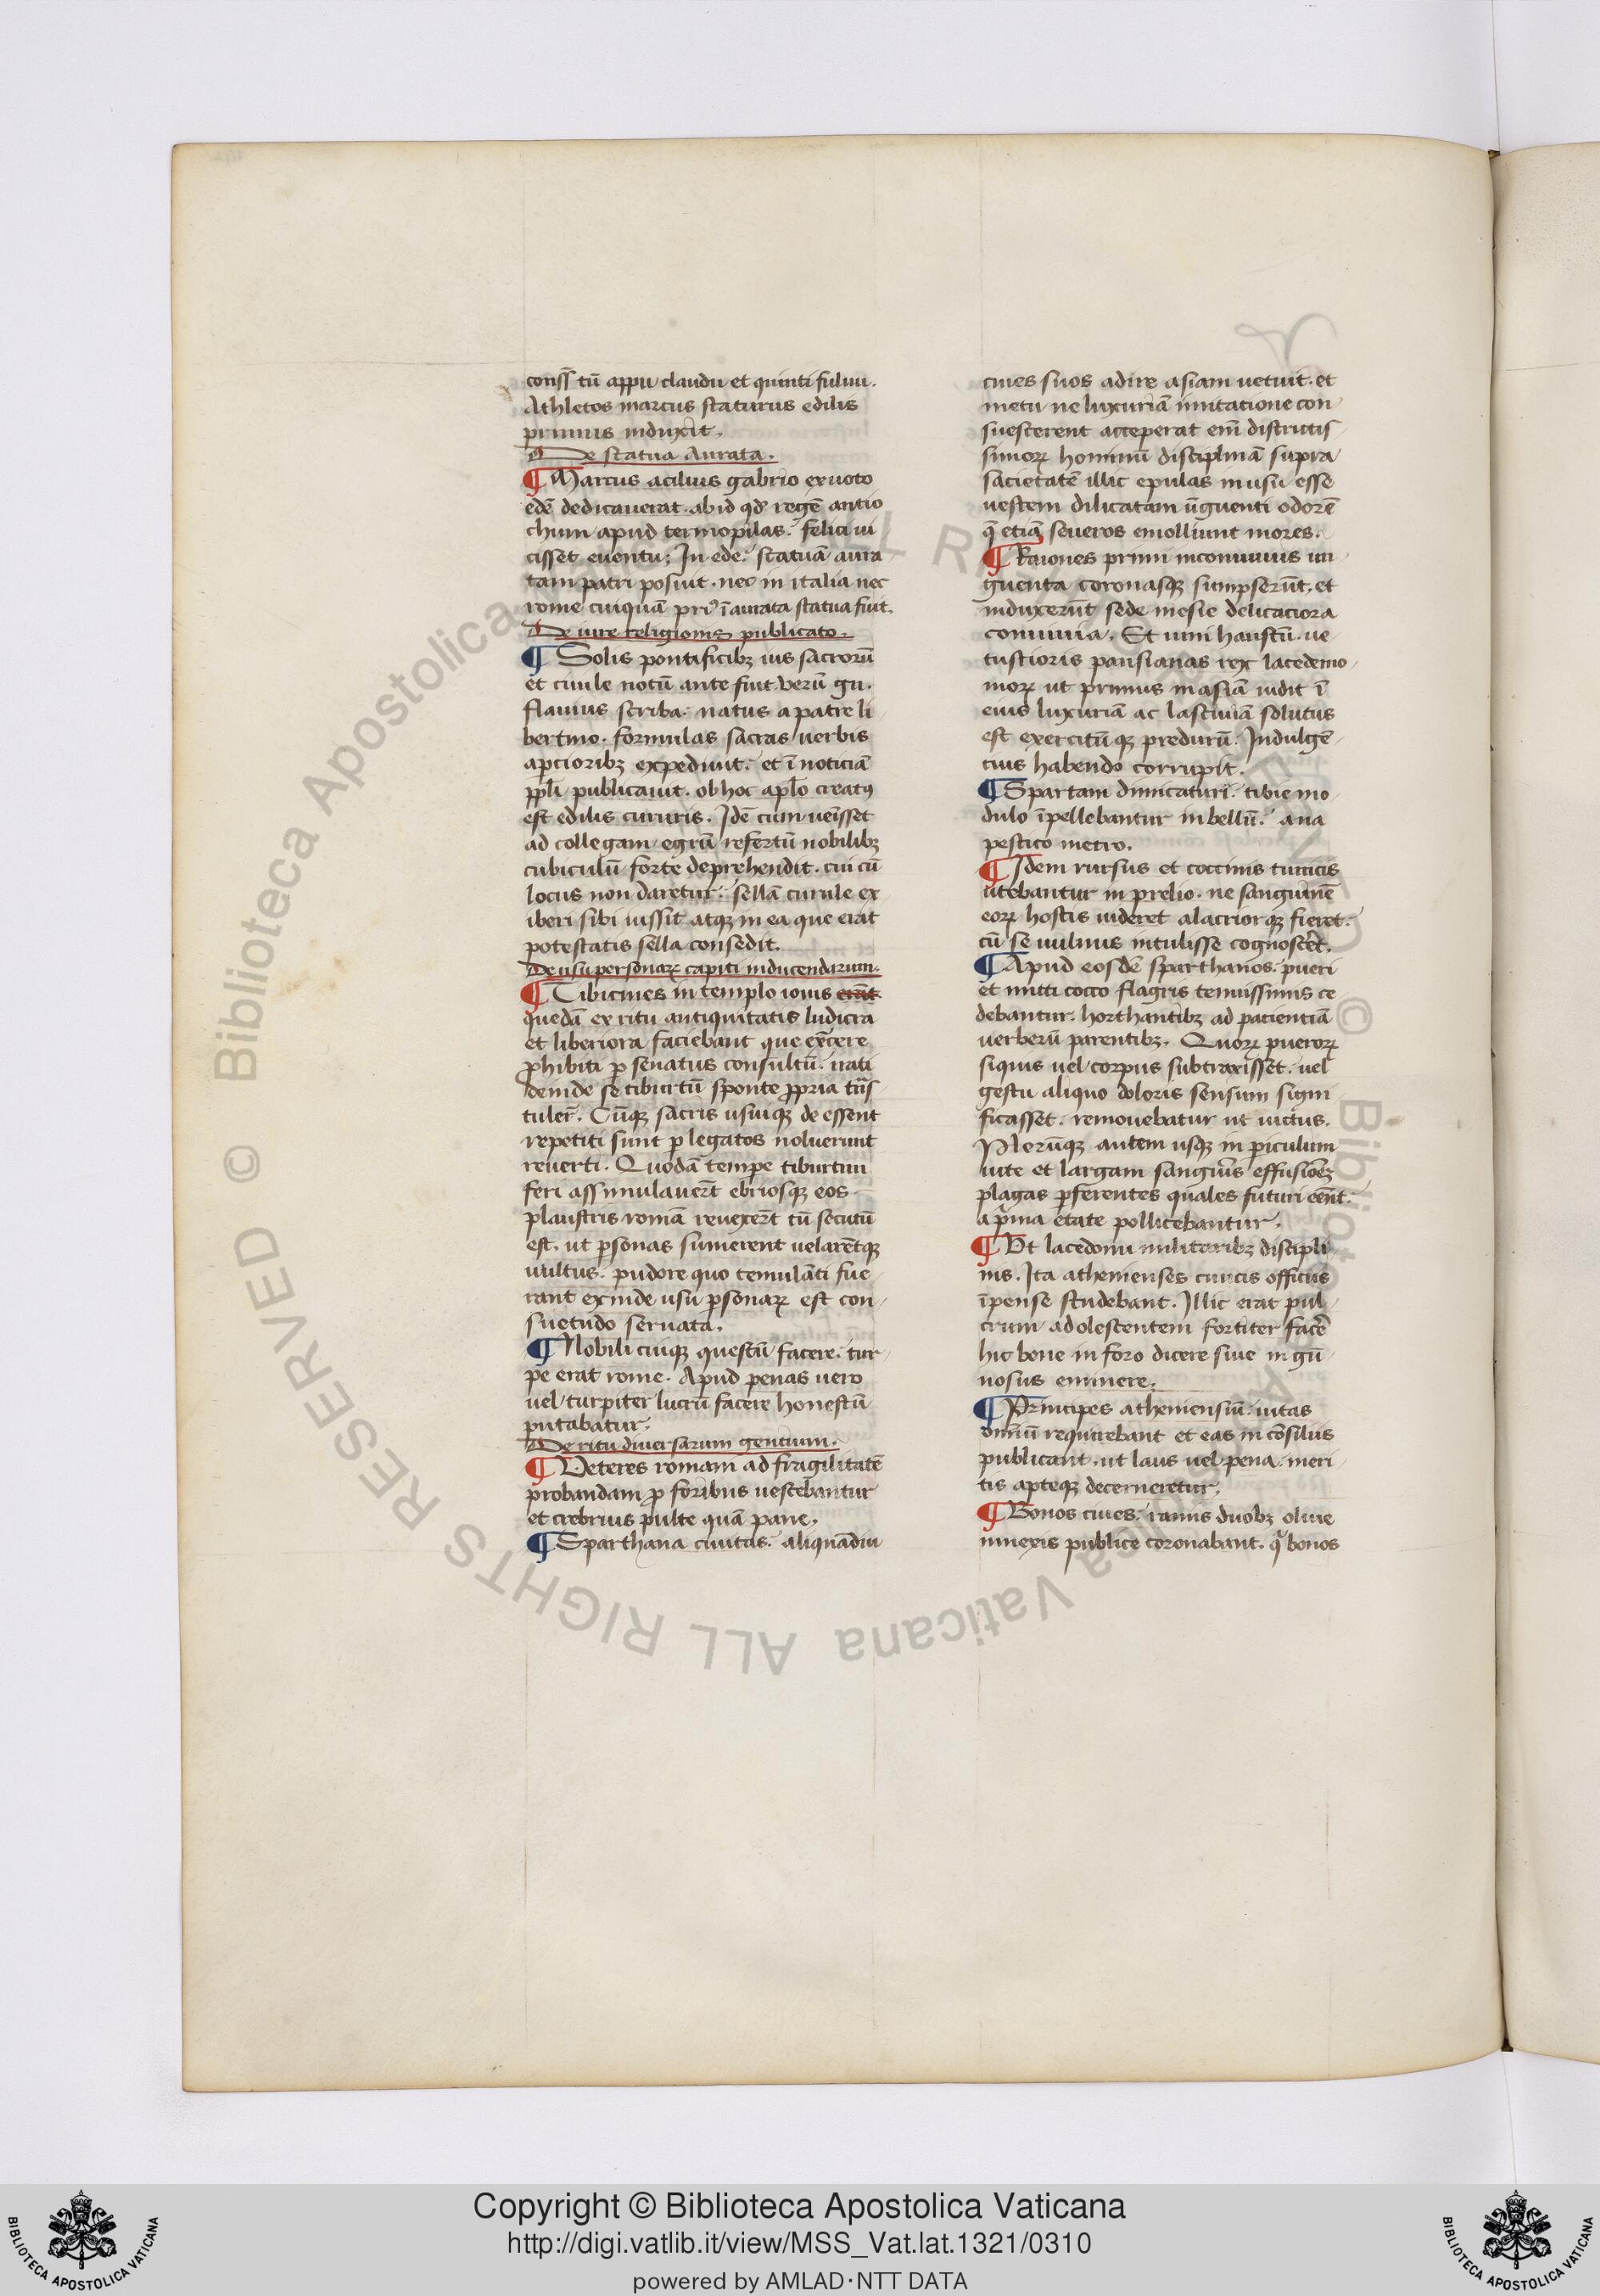 consłtū appii claudii et quinti fuluii.
Athletos marcus staturus edilis
primus induxit.
De statua aurata.
¶ Marcus acilius gabrio ex uoto
edē dedicauerat. ab id qđ regē antio
chum apud termopilas. felici ui
cisset euentu; In ede. statuā aura
tam patri posuit. nec in italia nec
rome cuiquā pri9 ī aurata statua fuit.
De iure religionis publicato.
¶ Solis pontificibꝫ ius sacrorū
et ciuile notū ante fuit verū gn.
flauius scriba. natus a patre li
bertino. formulas sacras uerbis
apcioribꝫ expediuit. et ī noticiā
ppłi publicauit. ob hoc aplo creatꝰ
est edilis cururis. Idē cum uēisset
ad collegam egrū refertū nobilibꝫ
cubiculū forte deprehendit. cui cū
locus non daretur. sellā curule ex
iberi sibi iussit atqꝫ in ea que erat
potestatis sella consedit.
De usu personaꝝ capiti inducendarum.
¶ Tibicines in templo iouis erāt
quedā ex ritu antiquitatis ludicra
et liberiora faciebant que ex̄cere
ꝓhibiti ꝑ senatus consultū. irati
deinde se tiburtū sponte ꝓpria trās
tuler̄t. Cūqꝫ sacris usuiqꝫ de essent
repetiti sunt ꝑ legatos noluerunt
reuerti. Quodā tempe tiburtini
feri assimulauer̄t ebriosqꝫ eos
plaustris romā reuexer̄t tū secutū
est. ut ꝑsonas sumerent uelarētqꝫ
uultus. pudore quo temulāti fue
rant exinde usu ꝑsonaꝝ est con
suetudo seruata.
¶ Nobili cuiqꝫ questū facere. tur
pe erat rome. Apud penas uero
uel turpiter lucrū facere honestū
putabatur.
De ritu diuersarum gentium.
¶ Veteres romam ad frugilitatē
probandam ꝓ foribus uescebantur
et crebrius pulte quā pane.
¶ Sparthana ciuitas. aliquādiu
ciues suos adire asiam uetuit. et
metu ne luxuriā imitacione con
suescerent acceperat em̄ districtis
simoꝝ hominū disciplinā supra
sacietatē illic epulas in usu esse
uestem dilicatam ūguenti odorē
q̄ etiā seueros emolliunt mores.
¶ Raiones primi in conuiuiis un
guenta coronasqꝫ sumpserūt. et
induxerūt sede mesie delicaciora
conuiuia. Et uini haustū. ue
tustioris pausianas rex lacedemo
nioꝝ ut primus in asiā iudit ī
eius luxuriā ac lasciuiā solutus
est exercitūqꝫ predurū. Indulgē
cius habendo corrupit.
¶ Spartam dimicaturi. tibie mo
dulo īpellebantur in bellū. ana
pestico metro.
¶ Idem rursus et coccinis tunicis
utebantur in prelio. ne sanguinē
eoꝝ hostis uideret alacriorqꝫ fieret.
cū se uulnus intulisse cognosc̄et.
¶ Apud eosdē sparthanos. pueri
et nutti cocco flagris tenuissimis ce
debantur. horthantibꝫ ad pacientiā
uerberū parentibꝫ. Quoꝝ pueroꝝ
siquis uel corpus subtraxisset. uel
gestu aliquo doloris sensum signi
ficasset. remouebatur ut uictus.
Plerūqꝫ autem usqꝫ in ꝑiculum
uite et largam sanguīs effusiōeꝫ
plagas ꝑferentes quales futuri eēnt.
a pͥma etate pollicebantur.
¶ Vt lacedonii militaribꝫ discipli
nis. Ita athenienses ciucis officiis
īpense studebant. Illic erat pul
crum adolescentem fortiter facē
hic bone in foro dicere siue in gū
nosiis eminere.
¶ Principes atheniensiū. uitas
omīū requirebant et eas in cōsiliis
publicant. ut laus uel pena. meri
tis apteqꝫ decerneretur.
¶ Bonos ciues. ramis duobꝫ oliue
innexis publice coronabant. qͣ bonos
© Biblioteca Apostolica Vaticana ALL RIGHTS RESERVED
Copyright © Biblioteca Apostolica Vaticana
http://digi.vatlib.it/view/MSS_Vat.lat.1321/0310
powered by AMLAD·NTT DATA
BIBLIOTECA APOSTOLICA VATICANA
BIBLIOTECA APOSTOLICA VATICANA